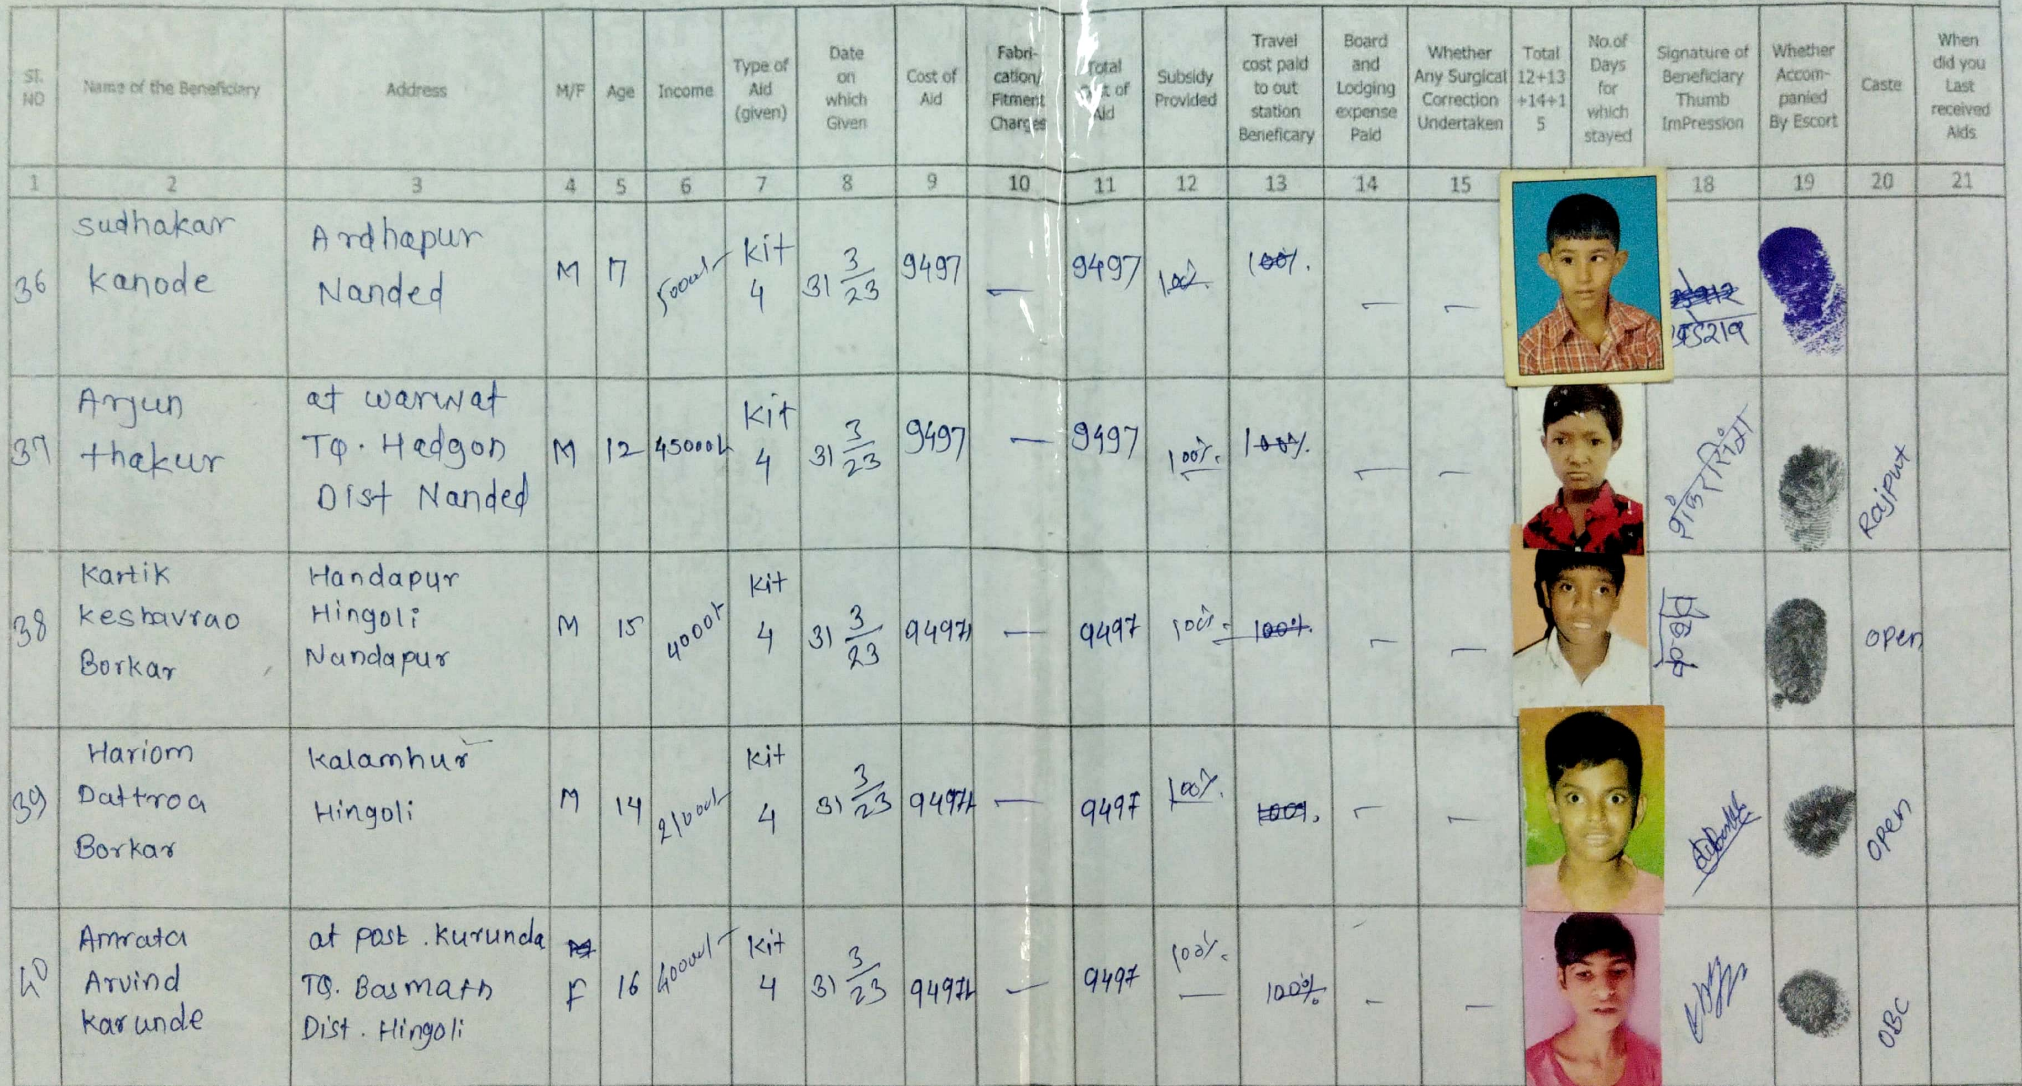 Sl. NO
Name of the Beneficiary
Address
M/F
Age
Income
Type of Aid (given)
Date on which Given
Cost of Aid
Fabri-cation/ Fitment Charges
Total Cost of Aid
Subsidy Provided
Travel cost paid to out station Beneficary
Board and Lodging expense Paid
Whether Any Surgical Correction Undertaken
Total 12+13 +14+1 5
No.of Days for which stayed
Signature of Beneficiary Thumb ImPression
Whether Accom-panied By Escort
Caste
When did you Last received Aids
1 2 3 4 5 6 7 8 9 10 11 12 13 14 15 18 19 20 21
36
Sudhakar
Kanode
Ardhapur
Nanded
M 17
Kit
4
31 3/23
9497
—
9497
100%
— —
37
Arjun
thakur
at warwat
TQ. Hadgon
Dist Nanded
M 12 45000/-
Kit
4
31 3/23
9497
—
9497
100%.
100%.
— —
Rajput
38
Kartik
Keshavrao
Borkar
Handapur
Hingoli
Nandapur
M 15 40001-
Kit
4
31 3/23
9497/-
—
9497
100%.
100%.
— —
open
39
Hariom
Dattroa
Borkar
Kalamhur
Hingoli
M 14
Kit
4
31 3/23
9497/-
—
9497
100%.
100%.
— —
open
40
Amrata
Arvind
Karunde
at post. Kurunda
TQ. Basmath
Dist. Hingoli
F 16
Kit
4
31 3/23
9497/-
—
9497
100%.
100%
— —
OBC